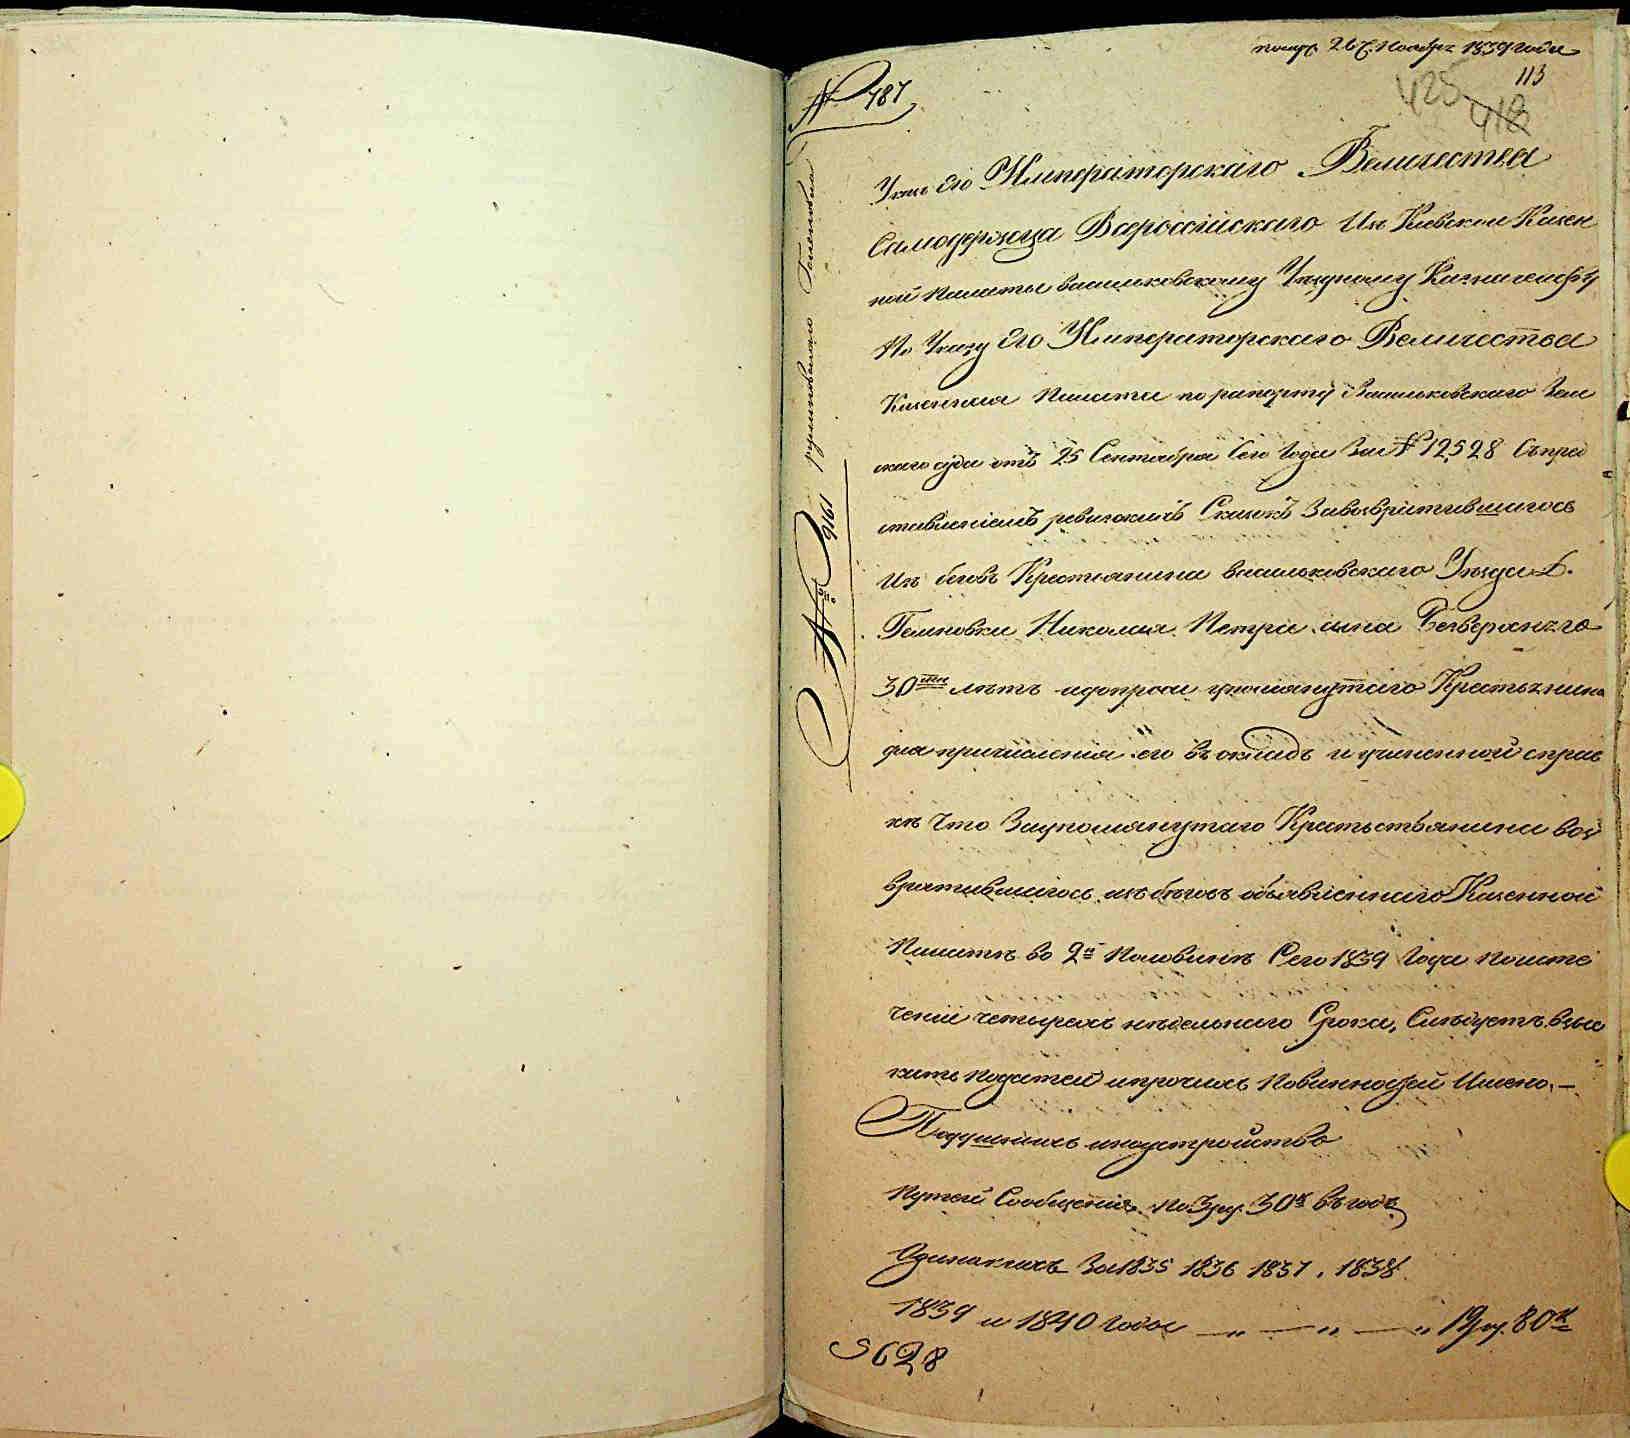 26 Ноября 1839 года
113
425
418
№ 787
Указ Его Императорскаго Величества
Самодержца Всероссійскаго Изъ Киевской Казен
ной Палаты васильковскому Уездному Казначейству
По Указу Его Императорскаго Величества
Казенная Палата по рапорту Васильковскаго Зем
скаго суда отъ 25 Сентября Сего Года За № 12528 Съ пред
ставленіемъ ревизскихъ Сказокъ Завозвратившагося
Изъ бегов Крестянина васильковскаго Уезда д.
Николая Петра сына
30 ти летъ и допроса упомянутаго Крестьянина
для причисления его въ окладъ и учиненной справ
ке Что Заупомянутаго возвратившагося изъ беговъ объявленнаго Казенной
Палате во 2й Половине Сего 1839 Года поисте
чении четырехъ недельнаго Срока, Следуетъ взыс
кать податей и прочихъ Повинностей Имено. —
Подушныхъ инаустройство
Путей Сообщения по 3 ру. 30 к въ годъ
За 1835 1836 1837, 1838
1839 и 1840 годы — „ — „ — „ 19 ру. 80 к
5628
№ 9161